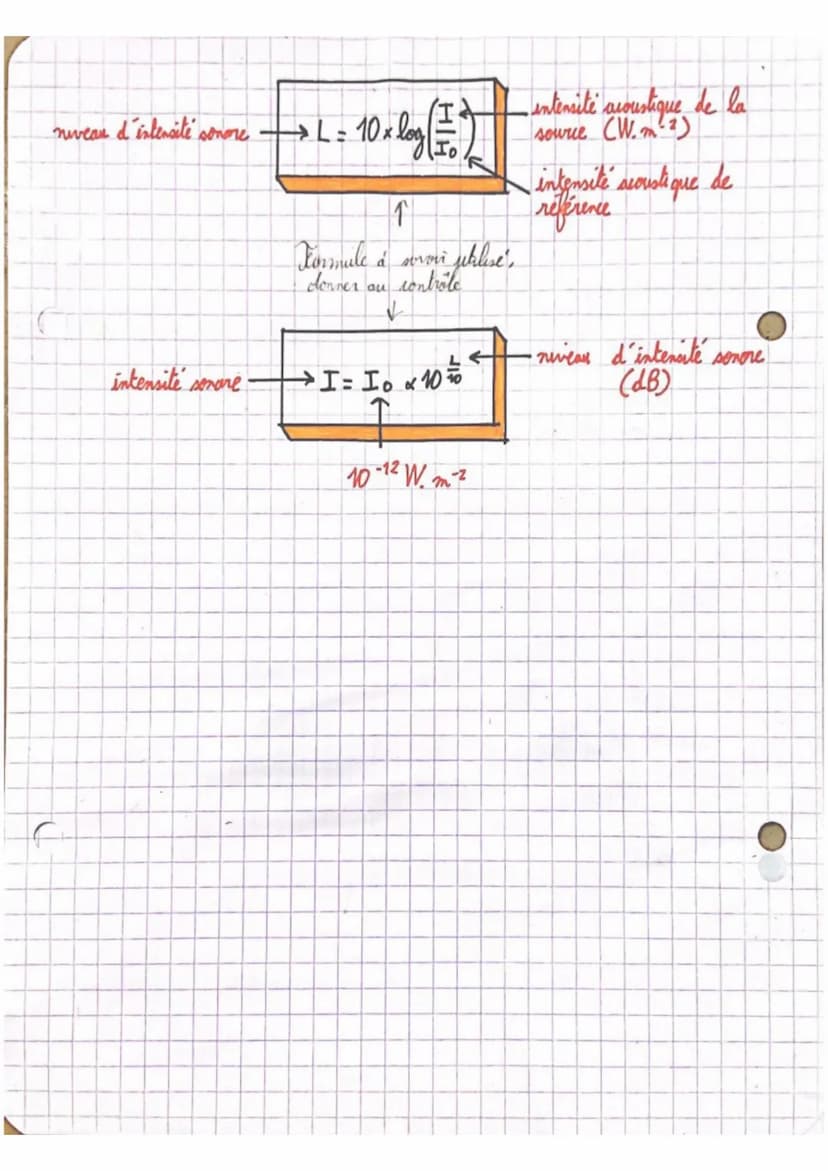 niveau d'intensité sonore
L = 10 × log(I/I₀)
intensité acoustique de la
source (W.m⁻²)
intensité acoustique de
référence
Formule à savoir utilisé,
donner au contrôle
intensité sonore
I = I₀ × 10^(L/10)
niveau d'intensité sonore
(dB)
10⁻¹² W.m⁻²